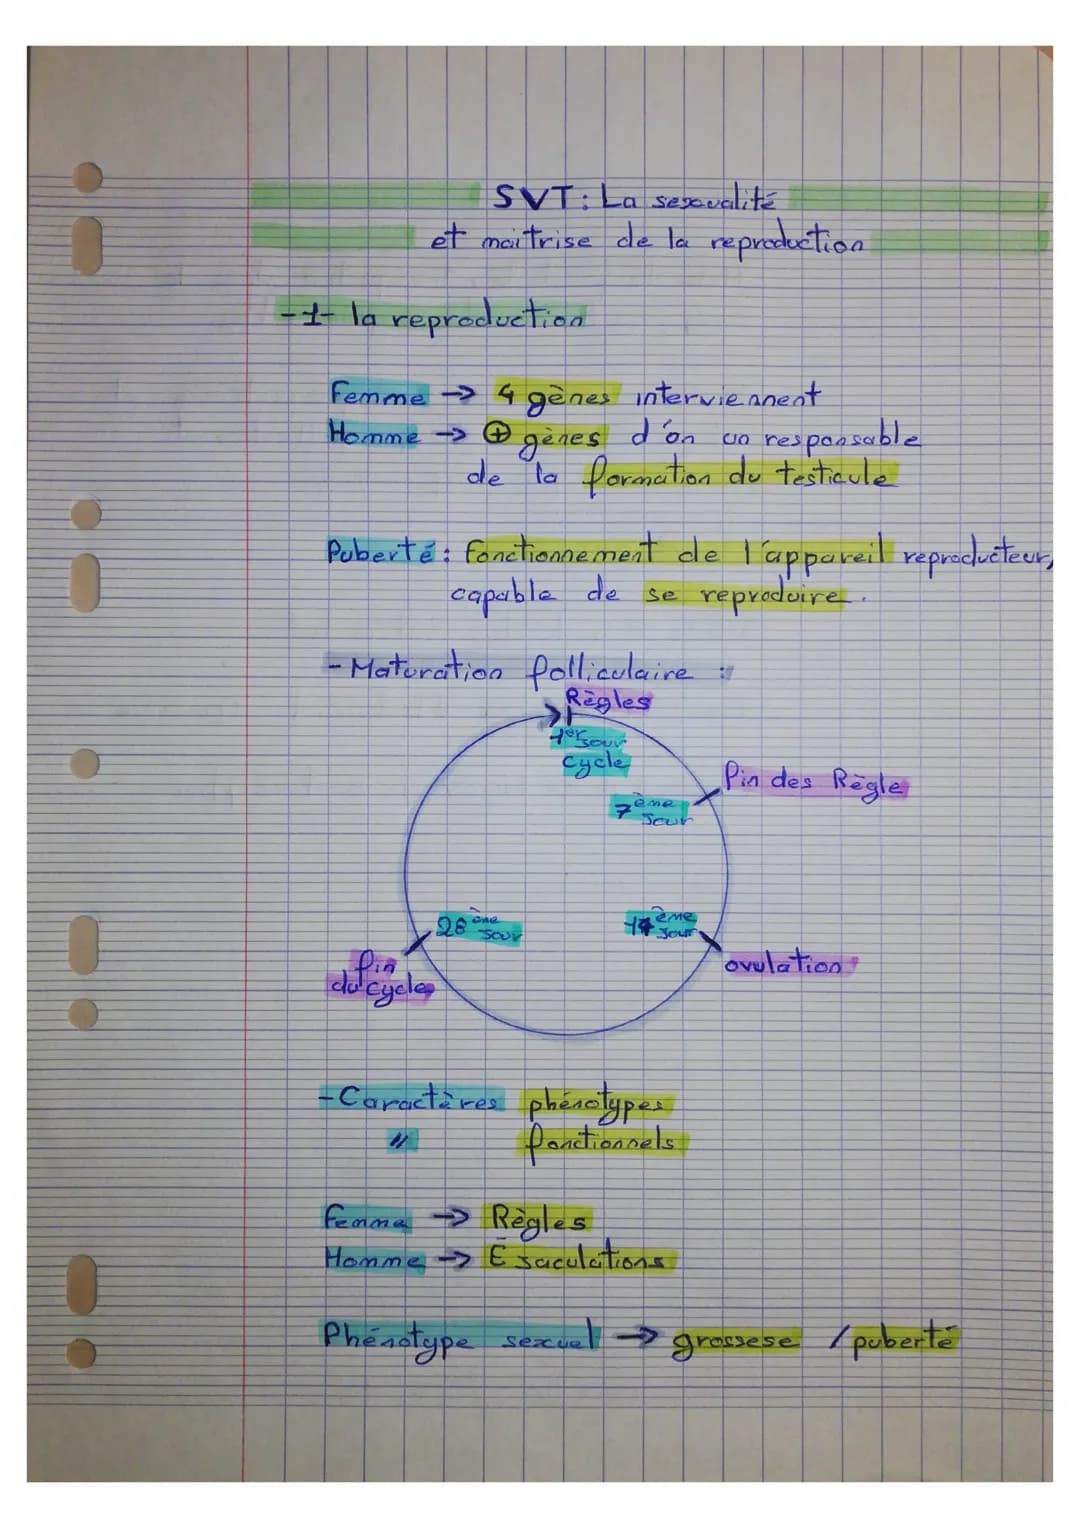 SVT: La sexualité
et maitrise de la reproduction
-1- la reproduction
Femme → 4 gènes interviennent
Homme → ⊕ gènes d'on un responsable
de la formation du testicule
Puberté : fonctionnement de l'appareil reproducteur,
capable de se reproduire.
- Maturation folliculaire :
Règles
1er Jour
Cycle
fin des Règle
7ème
Jour
28ème
Jour
14ème
Jour
fin
du cycle
ovulation
- Caractères phénotypes
" fonctionnels
Femme → Règles
Homme → Éjaculations
Phénotype sexuel → grossese / puberté